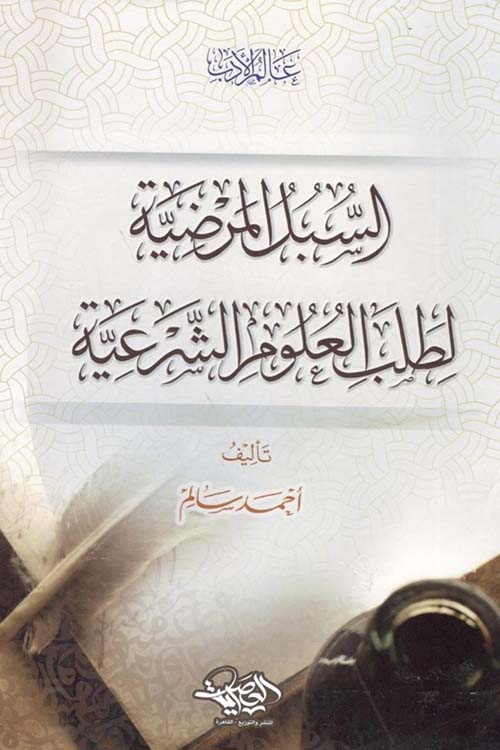 عَالَمُ الأَدَبِ
السُّبُلُ المَرْضِيَّة
لِطَلَبِ العُلُومِ الشَّرْعِيَّة
تَأْلِيْفُ
أحمد سالم
للنشر والتوزيع - القاهرة